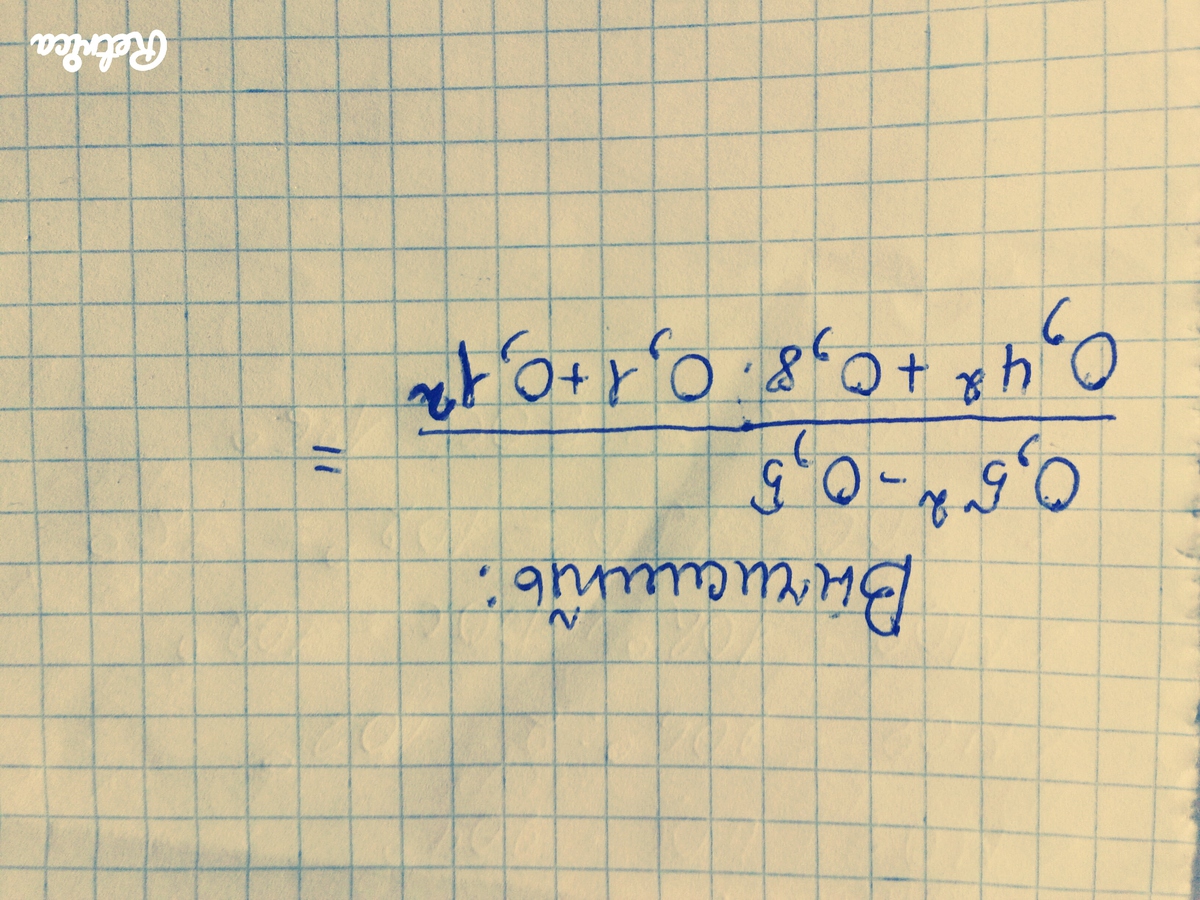 Вычислить:
0,5² - 0,5
0,4² + 0,8 · 0,1 + 0,1²
=
Retrica